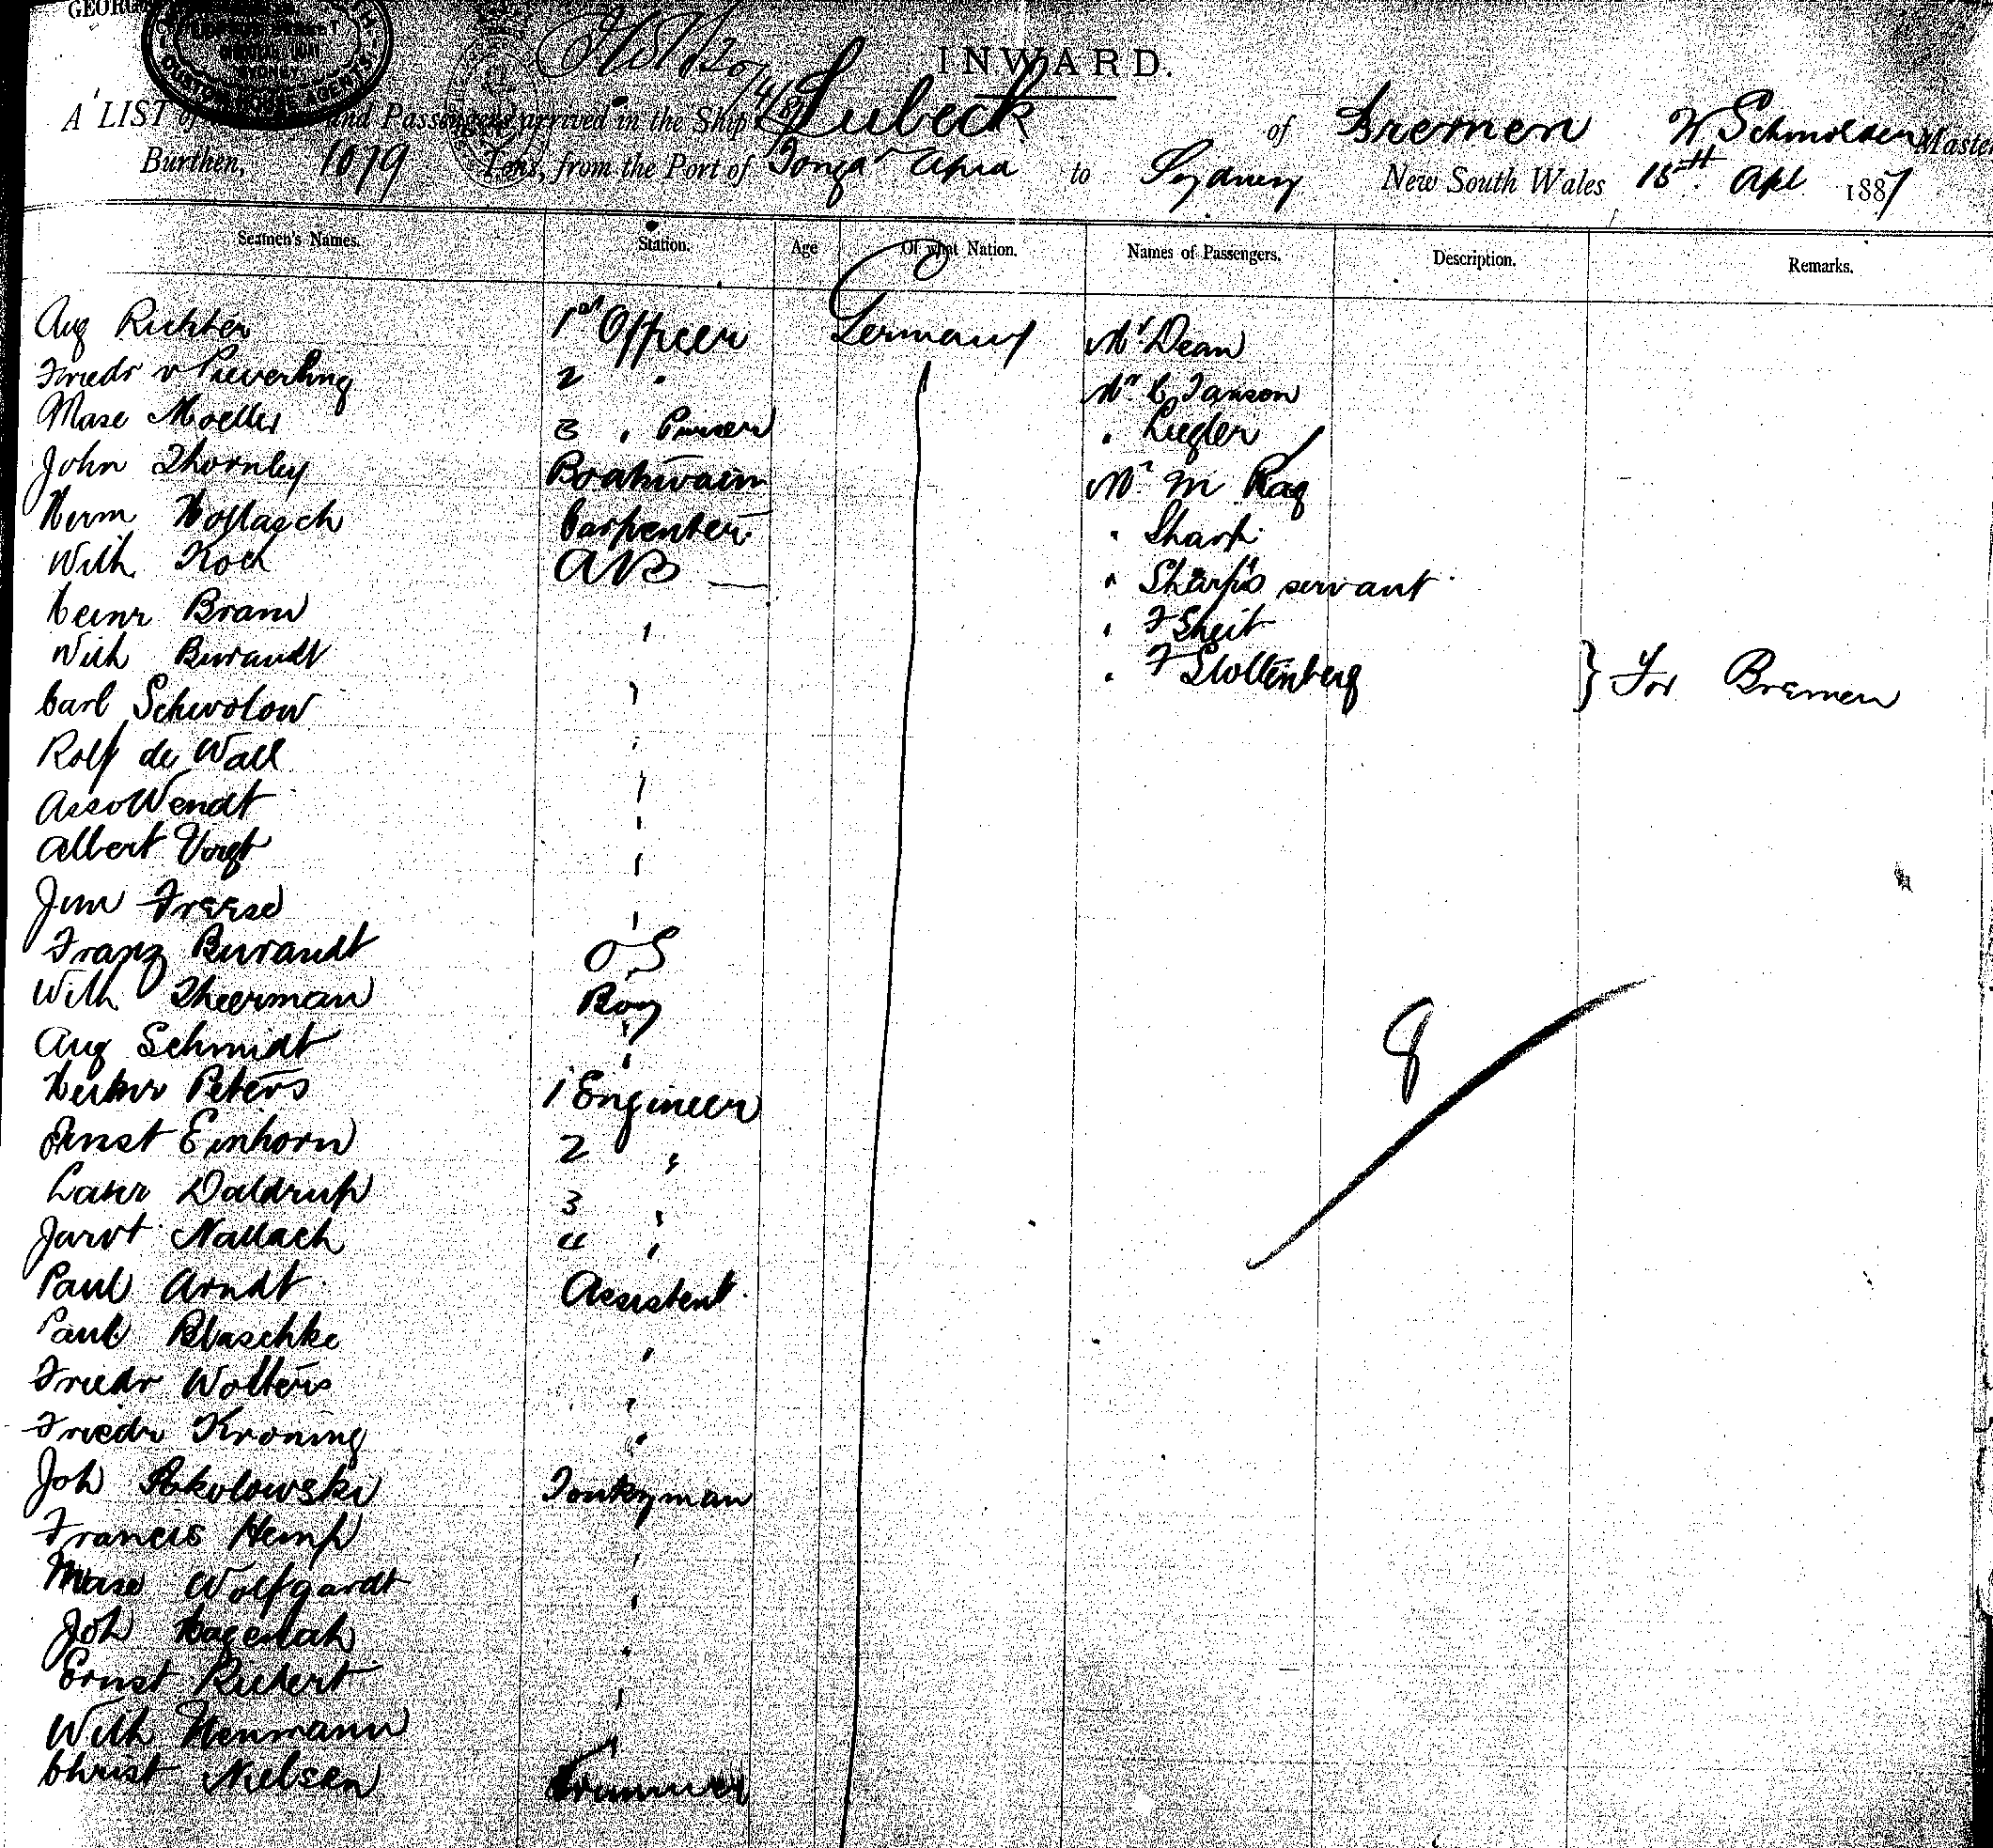 GEORGE
SYDNEY
CUSTOM HOUSE AGENTS
INWARD.
A LIST of and Passengers arrived in the Ship Lubeck of Bremen W Schmolder Master
Burthen, 1079 Tons, from the Port of Tonga Apia to Sydney New South Wales 15th Apl 1887
Seamen's Names. Station. Age Of what Nation. Names of Passengers. Description. Remarks.
Aug Richter 1st Officer Germany Mr Dean
Friedr v Pieverling 2 " Mr C Janson
Moeller 3 " Purser " Ziegler
John Thornley Boatswain Mr M Rag
Herm Carpenter " Sharp
Wilh Koch AB " Sharp's servant
Heinr Bram " " F
Wilh Burandt " F Stoltenberg } For Bremen
Carl Schwolow "
Rolf de Wall "
Wendt "
Albert Voigt "
Freese "
Franz Burandt OS
Wilh Theerman Boy
Aug Schmidt "
Peters 1 Engineer
Ernst Einhorn 2 "
Daldrup 3 "
Wallach 4 "
Paul Arndt Assistent
Paul Blaschke "
Friedr Wolters "
Friedr Kroning "
Joh Sokolowski Donkeyman
Francis Hemp "
Wolfgardt "
Joh Hagenah "
Ernst Rickert "
Wilh "
Christ Nielsen Trimmer
8